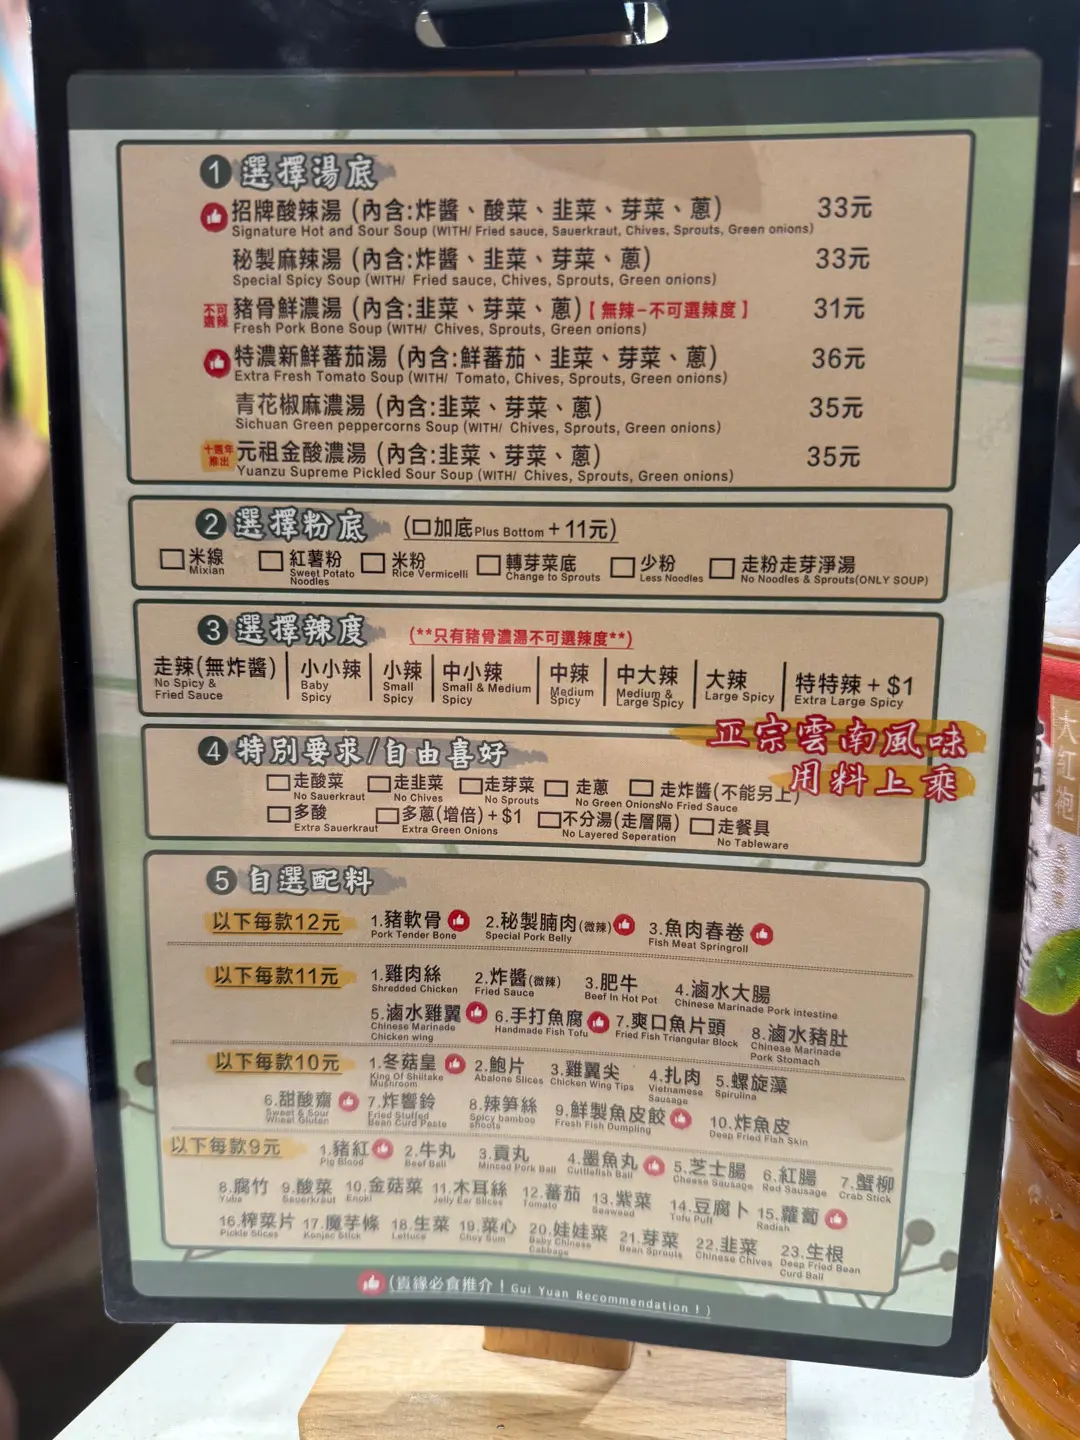 1 選擇湯底
招牌酸辣湯 (內含:炸醬、酸菜、韭菜、芽菜、蔥) 33元
Signature Hot and Sour Soup (WITH/ Fried sauce, Sauerkraut, Chives, Sprouts, Green onions)
秘製麻辣湯 (內含:炸醬、韭菜、芽菜、蔥) 33元
Special Spicy Soup (WITH/ Fried sauce, Chives, Sprouts, Green onions)
不可選辣 豬骨鮮濃湯 (內含:韭菜、芽菜、蔥)【無辣-不可選辣度】 31元
Fresh Pork Bone Soup (WITH/ Chives, Sprouts, Green onions)
特濃新鮮蕃茄湯 (內含:鮮蕃茄、韭菜、芽菜、蔥) 36元
Extra Fresh Tomato Soup (WITH/ Tomato, Chives, Sprouts, Green onions)
青花椒麻濃湯 (內含:韭菜、芽菜、蔥) 35元
Sichuan Green peppercorns Soup (WITH/ Chives, Sprouts, Green onions)
十週年推出 元祖金酸濃湯 (內含:韭菜、芽菜、蔥) 35元
Yuanzu Supreme Pickled Sour Soup (WITH/ Chives, Sprouts, Green onions)
2 選擇粉底 (□加底Plus Bottom + 11元)
□ 米線 □ 紅薯粉 □ 米粉 □ 轉芽菜底 □ 少粉 □ 走粉走芽淨湯
Mixian Sweet Potato Noodles Rice Vermicelli Change to Sprouts Less Noodles No Noodles & Sprouts(ONLY SOUP)
3 選擇辣度 (**只有豬骨濃湯不可選辣度**)
走辣(無炸醬) 小小辣 小辣 中小辣 中辣 中大辣 大辣 特特辣 + $1
No Spicy & Fried Sauce Baby Spicy Small Spicy Small & Medium Spicy Medium Spicy Medium & Large Spicy Large Spicy Extra Large Spicy
正宗雲南風味
用料上乘
4 特別要求/自由喜好
□走酸菜 □走韭菜 □走芽菜 □ 走蔥 □ 走炸醬(不能另上)
No Sauerkraut No Chives No Sprouts No Green Onions No Fried Sauce
□多酸 □多蔥(增倍) + $1 □不分湯(走層隔) □走餐具
Extra Sauerkraut Extra Green Onions No Layered Seperation No Tableware
5 自選配料
以下每款12元 1.豬軟骨 2.秘製腩肉(微辣) 3.魚肉春卷
Pork Tender Bone Special Pork Belly Fish Meat Springroll
以下每款11元 1.雞肉絲 2.炸醬(微辣) 3.肥牛 4.滷水大腸
Shredded Chicken Fried Sauce Beef In Hot Pot Chinese Marinade Pork intestine
5.滷水雞翼 6.手打魚腐 7.爽口魚片頭 8.滷水豬肚
Chinese Marinade Chicken wing Handmade Fish Tofu Fried Fish Triangular Block Chinese Marinade Pork Stomach
以下每款10元 1.冬菇皇 2.鮑片 3.雞翼尖 4.扎肉 5.螺旋藻
King Of Shiitake Mushroom Abalone Slices Chicken Wing Tips Vietnamese Sausage Spirulina
6.甜酸齋 7.炸響鈴 8.辣筍絲 9.鮮製魚皮餃 10.炸魚皮
Sweet & Sour Wheat Gluten Fried Stuffed Bean Curd Paste Spicy bamboo shoots Fresh Fish Dumpling Deep Fried Fish Skin
以下每款9元 1.豬紅 2.牛丸 3.貢丸 4.墨魚丸 5.芝士腸 6.紅腸 7.蟹柳
Pig Blood Beef Ball Minced Pork Ball Cuttlefish Ball Cheese Sausage Red Sausage Crab Stick
8.腐竹 9.酸菜 10.金菇菜 11.木耳絲 12.蕃茄 13.紫菜 14.豆腐卜 15.蘿蔔
Yuba Sauerkraut Enoki Jelly Ear Slices Tomato Seaweed Tofu Puff Radish
16.榨菜片 17.魔芋條 18.生菜 19.菜心 20.娃娃菜 21.芽菜 22.韭菜 23.生根
Pickle Slices Konjac Stick Lettuce Choy Sum Baby Chinese Cabbage Bean Sprouts Chinese Chives Deep Fried Bean Curd Ball
(貴緣必食推介！Gui Yuan Recommendation！)
大紅袍